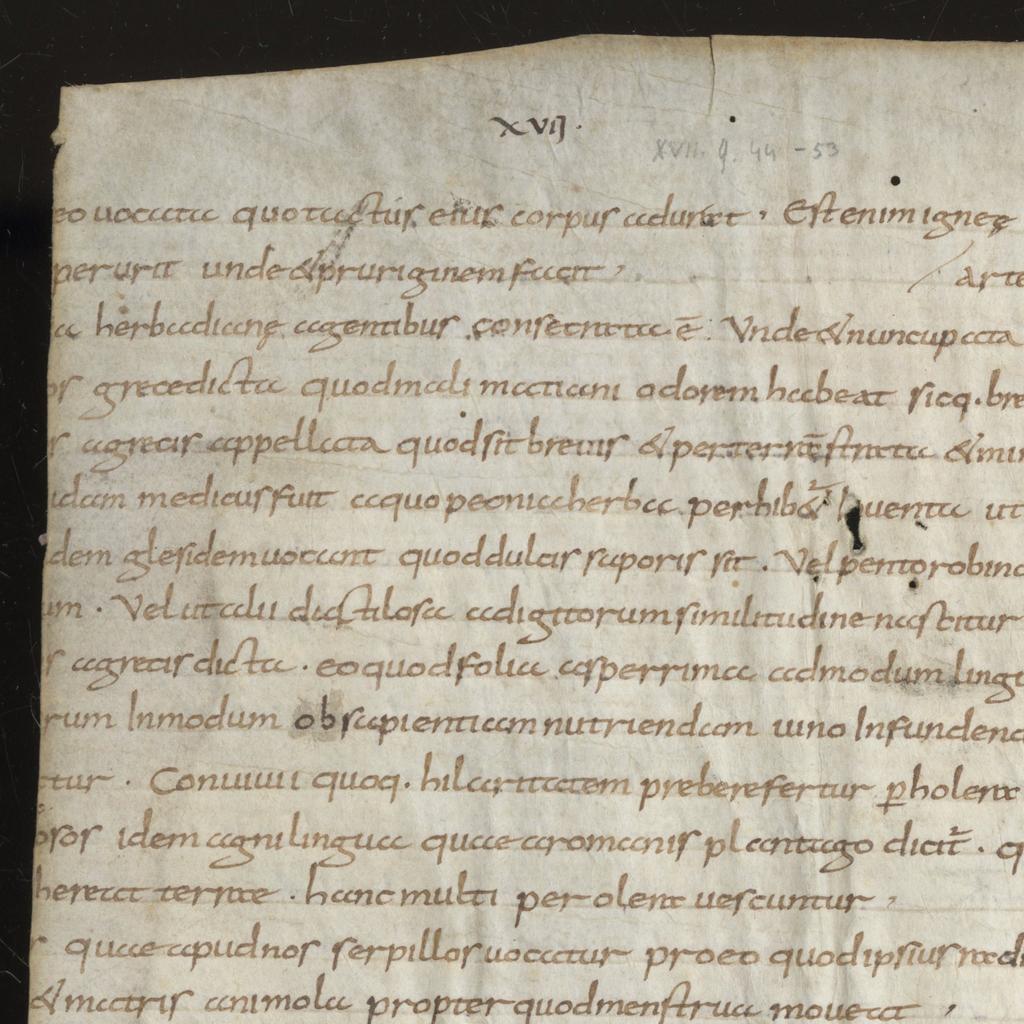 XVII.
XVII. 9. 44 - 53
eo uocata quo tactus eius corpus adurat, Est enim igneę
perurit unde & pruriginem facit, arte
a herba dianę a gentibus consecrata ē. Vnde & nuncupata
os grece dicta quod mali matiani odorem habeat sicq. bre
s a grecis appellata quod sit breuis & per terrā strata & mi
idam medicus fuit a quo peonia herba perhib& Inuenta ut
dem glesidem uocant quod dulcis saporis sit. Vel pentorobin
um. Vel ut alii dactilosa a digitorum similitudine nascitur
s a grecis dicta. eo quod folia asperrima ad modum lingu
rum In modum ob sapientiam nutriendam uino Infunden
tur. Conuiuii quoq. hilaritatem prebere fertur, ꝑ holere
osos idem agni lingua quae a romanis plantago dicit. q
hereat terrae. hanc multi per olera uescuntur,
s quae apud nos serpillos uocatur pro eo quod ipsius radi
& matris animola propter quod menstrua moueat,